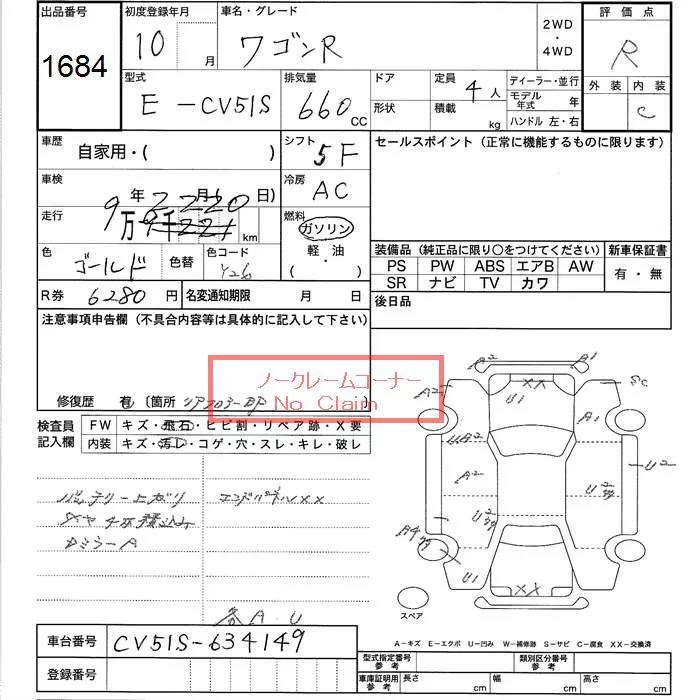 出品番号 1684
初度登録年月 10 月
車名・グレード ワゴンR
2WD ・ 4WD
評価点 R
外装 内装 C
型式 E-CV51S
排気量 660 CC
ドア
形状
定員 4 人
積載 kg
ディーラー・並行
モデル年式 年
ハンドル 左・右
車歴 自家用・( )
シフト 5F
セールスポイント (正常に機能するものに限ります)
車検 年 月 日)
冷房 AC
走行 9万 千 km
燃料 ガソリン 軽・油 ・( )
色 ゴールド 色替 色コード Y26
装備品 (純正品に限り○をつけてください)
新車保証書 有・無
PS PW ABS エアB AW
SR ナビ TV カワ
R券 6280 円
名変通知期限 月 日
後日品
注意事項申告欄 (不具合内容等は具体的に記入して下さい)
ノークレームコーナー
No Claim
修復歴 有 (箇所 リアフロアーBP )
検査員記入欄
FW キズ・飛石・ヒビ割・リペア跡・X要
内装 キズ・汚レ・コゲ・穴・スレ・キレ・破レ
バッテリー上ガリ
エンドパネルXX
タイヤ4本積込み
DミラーA
各A.U
A2 A1
XX
A2 U1 SC
U2 A1
A2 U2
U2
A4
U1 XX
スペア
A-キズ E-エクボ U-凹み W-補修跡 S-サビ C-腐食 XX-交換済
車台番号 CV51S-634149
登録番号
型式指定番号 参考
類別区分番号 参考
車庫証明用 参考 長さ cm 幅 cm 高さ cm